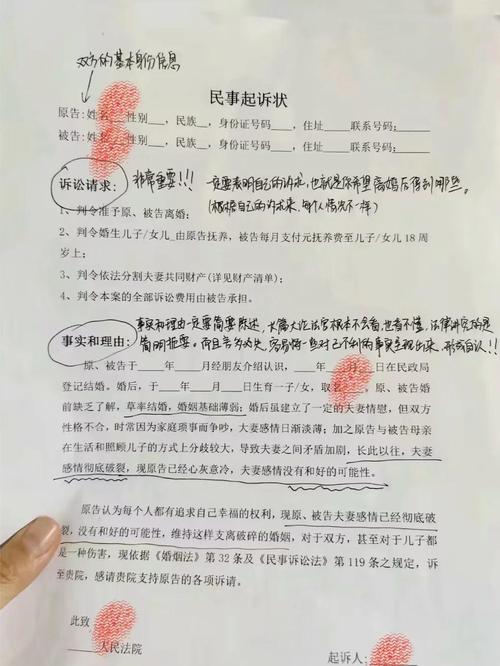 双方的基本身份信息
民事起诉状
原告:姓名 性别___,民族__,身份证号码___,住址____联系号码:_____
被告:姓名 性别___,民族__,身份证号码___,住址____联系号码:_____
诉讼请求: 非常重要!!! 一定要表明自己的诉求,也就是你希望离婚后得到哪些。
(根据自己的诉求来,每个人情况不一样)
1、判令准予原、被告离婚;
2、判令婚生儿子/女儿_由原告抚养,被告每月支付元抚养费至儿子/女儿 18 周
岁上;
3、判令依法分割夫妻共同财产(详见财产清单);
4、判令本案的全部诉讼费用由被告承担。
事实和理由: 事实和理由一定要简要陈述,大篇大论法官根本不会看,也看不懂,法律讲究的是
简明扼要。而且言多必失,容易将一些对己不利的事实呈现出来,形成自认!!
原、被告于____年____月经朋友介绍认识, 年 日在民政局
登记结婚。婚后,于____年____月____日生育一子/女,取名 。原、被告婚
前缺乏了解,草率结婚,婚姻基础薄弱;婚后虽建立了一定的夫妻情慰,但双方
性格不合,时常因为家庭琐事而争吵,夫妻感情日渐淡薄;加之原告与被告母亲
在生活和照顾儿子的方式上分歧较大,导致夫妻之间矛盾加剧,长此以往,夫妻
感情彻底破裂,现原告已经心灰意冷,夫妻感情没有和好的可能性。
原告认为每个人都有追求自己幸福的权利,现原、被告夫妻感情已经彻底破
裂,没有和好的可能性,维持这样支离破碎的婚姻,对于双方,甚至对于儿子都
是一种伤害,现依据《婚姻法》第 32 条及《民事诉讼法》第 119 条之规定,诉
至贵院,感请贵院支持原告的各项诉请。
此致
____人民法院
起诉人: